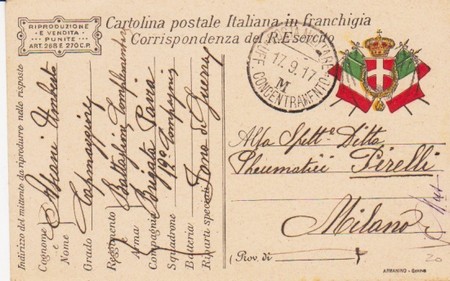 RIPRODUZIONE
E VENDITA
PUNITE
ART. 285 E 270 C.P.
Cartolina postale Italiana in franchigia
Corrispondenza del R. Esercito
17.9.17
M
UFF CONCENTRAMENTO
Indirizzo del mittente da riprodurre nelle risposte
Cognome e Nome Umberto
Grado
Reggimento Battaglione
Arma Brigata Pavia
Compagnia 12ª Compagnia
Squadrone
Batteria Zona di Guerra
Riparti speciali
Alla Spett.e Ditta
Pneumatici Pirelli
Milano
(Prov. di
20